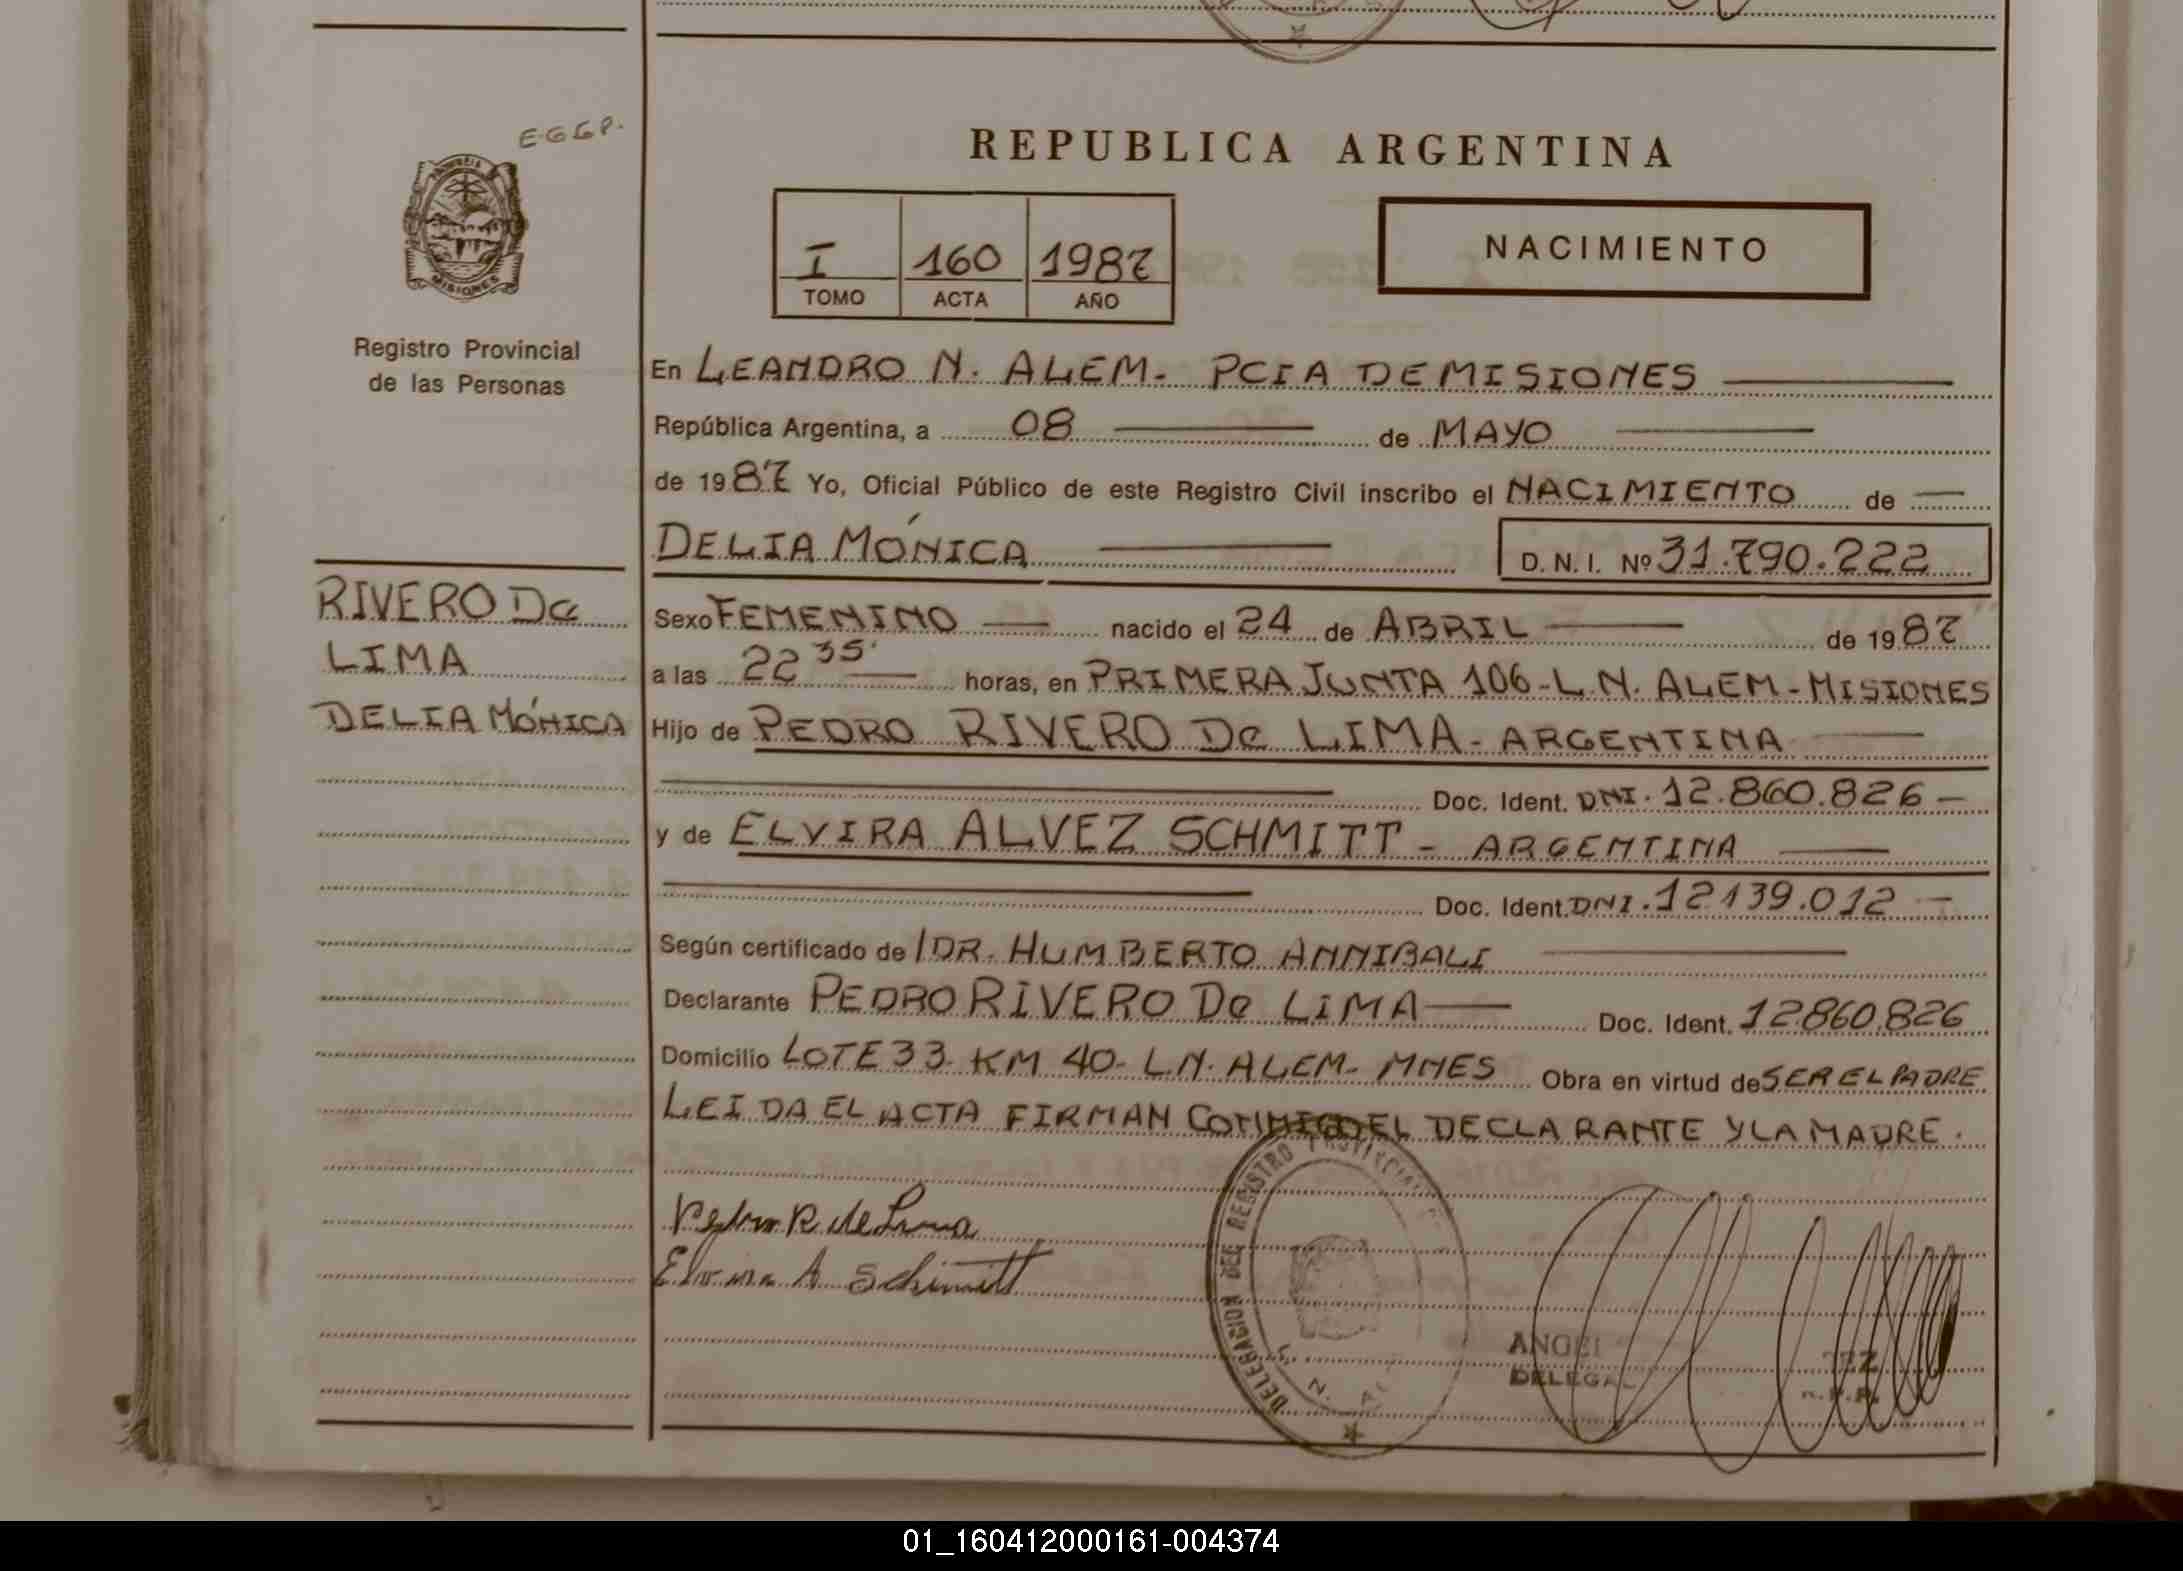 EGGP.
REPUBLICA ARGENTINA
PROVINCIA
MISIONES
Registro Provincial
de las Personas
I 160 1987
TOMO ACTA AÑO
NACIMIENTO
En LEANDRO N. ALEM - PCIA DE MISIONES
República Argentina, a 08 de MAYO
de 1987 Yo, Oficial Público de este Registro Civil inscribo el NACIMIENTO de
DELIA MÓNICA D. N. I. Nº 31.790.222
RIVERO De
LIMA
DELIA MÓNICA
Sexo FEMENINO nacido el 24 de ABRIL de 1987
a las 22 35' horas, en PRIMERA JUNTA 106 - L.N. ALEM - MISIONES
Hijo de PEDRO RIVERO De LIMA - ARGENTINA
Doc. Ident. DNI. 12.860.826 -
y de ELVIRA ALVEZ SCHMITT - ARGENTINA
Doc. Ident. DNI. 12139.012 -
Según certificado de / DR. HUMBERTO ANNIBALI
Declarante PEDRO RIVERO De LIMA Doc. Ident. 12860.826
Domicilio LOTE 33 - KM 40 - L.N. ALEM - MNES Obra en virtud de SER EL PADRE
LEIDA EL ACTA FIRMAN CONMIGO EL DECLARANTE Y LA MADRE.
Pedro R de Lima
Elvira A Schimitt
DELEGACION DEL REGISTRO PROVINCIAL
01_160412000161-004374